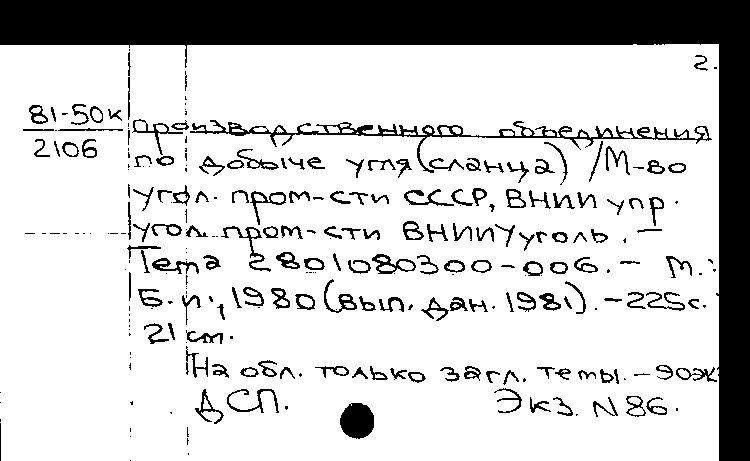 2.
81-50к
2106
производственного объединения
по добыче угля (сланца) /М-во
угол. пром-сти СССР, ВНИИ упр.
угол. пром-сти ВНИИУуголь. –
Тема 2801080300-006. – М.:
Б.и., 1980 (вып. дан. 1981). – 225с.
21 см.
На обл. только загл. темы. – 90эк
ДСП. Экз. N 86.